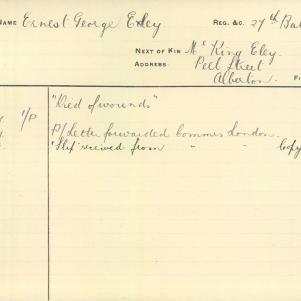 NAME Ernest George Eley REG. &C. 27th Bat
NEXT OF KIN Mr King Eley.
ADDRESS Peel Street
Alberton.
"Died of wounds"
1/P
P/Letter forwarded Commis London.
"Slip" received from " " Copy